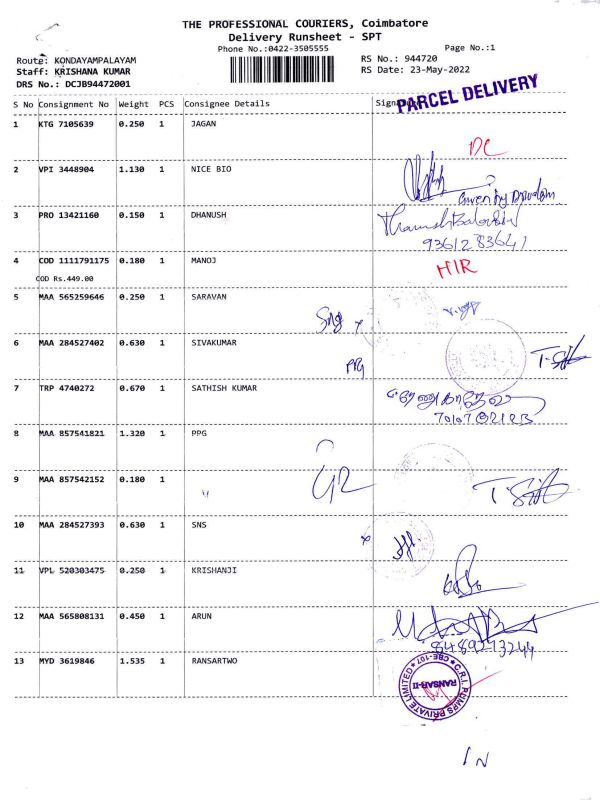 THE PROFESSIONAL COURIERS, Coimbatore
Delivery Runsheet - SPT
Phone No.:0422-3505555
Page No.:1
Route: KONDAYAMPALAYAM
RS No.: 944720
Staff: KRISHANA KUMAR
RS Date: 23-May-2022
DRS No.: DCJB94472001
PARCEL DELIVERY
S No Consignment No Weight PCS Consignee Details
1 KTG 7105639 0.250 1 JAGAN
DC
2 VPI 3448904 1.130 1 NICE BIO
Given by
3 PRO 13421160 0.150 1 DHANUSH
9361283641
4 COD 1111791175 0.180 1 MANOJ
HIR
COD Rs.449.00
5 MAA 565259646 0.250 1 SARAVAN
6 MAA 284527402 0.630 1 SIVAKUMAR
PPG
7 TRP 4740272 0.670 1 SATHISH KUMAR
8 MAA 857541821 1.320 1 PPG
9 MAA 857542152 0.180 1 "
10 MAA 284527393 0.630 1 SNS
11 VPL 520303475 0.250 1 KRISHANJI
12 MAA 565808131 0.450 1 ARUN
8489273244
13 MYD 3619846 1.535 1 RANSARTWO
C.R.I. PUMPS PRIVATE LIMITED
CBE-107
RANSAR-II